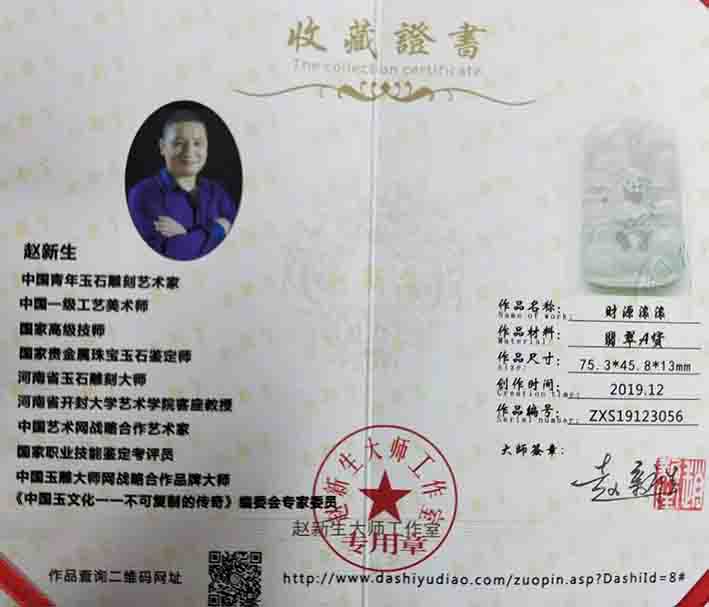 收藏證書
The collection certificate
赵新生
中国青年玉石雕刻艺术家
中国一级工艺美术师
国家高级技师
国家贵金属珠宝玉石鉴定师
河南省玉石雕刻大师
河南省开封大学艺术学院客座教授
中国艺术网战略合作艺术家
国家职业技能鉴定考评员
中国玉雕大师网战略合作品牌大师
《中国玉文化——不可复制的传奇》编委会专家委员
作品名称： 财源滚滚
Name of work:
作品材料： 翡翠A货
Material:
作品尺寸： 75.3*45.8*13mm
Size:
创作时间： 2019.12
Creation time:
作品编号： ZXS19123056
Serial number:
大师签章：
赵新生大师工作室
专用章
赵新生大师工作室
作品查询二维码网址
http://www.dashiyudiao.com/zuopin.asp?DashiId=8#